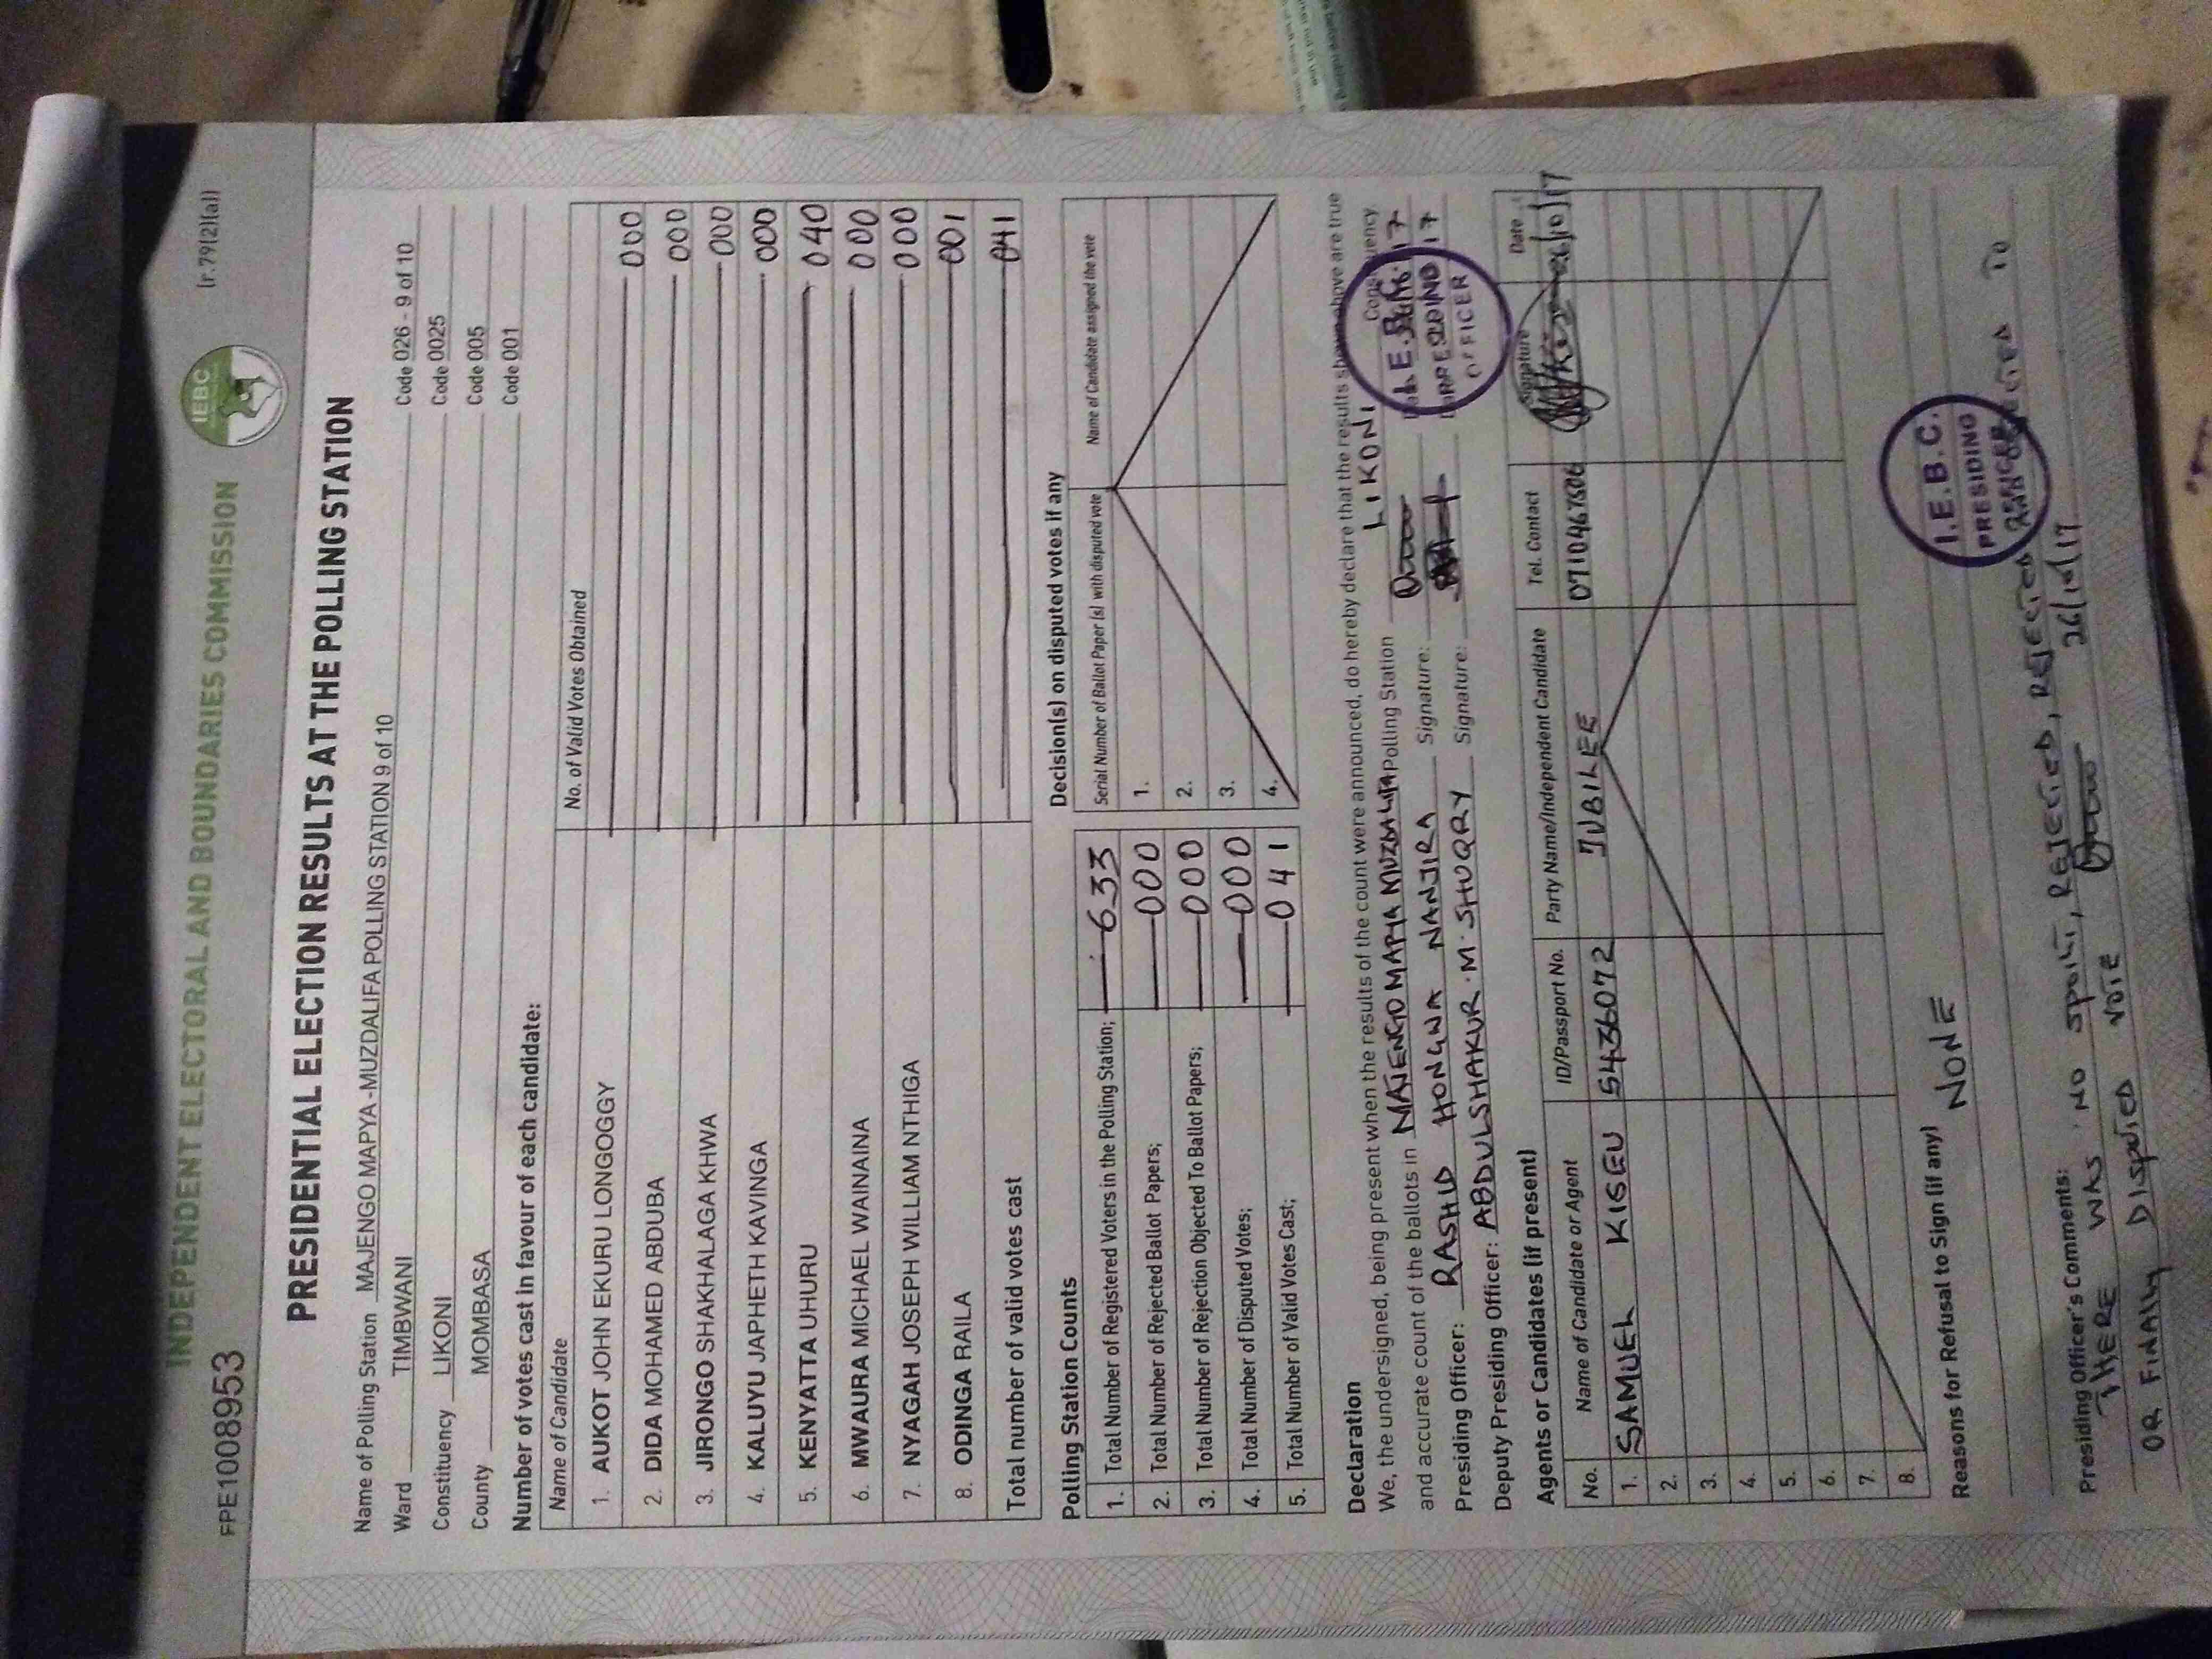 INDEPENDENT ELECTORAL AND BOUNDARIES COMMISSION
IEBC
FPE1008953
(r.79(2)(a))
PRESIDENTIAL ELECTION RESULTS AT THE POLLING STATION
Name of Polling Station MAJENGO MAPYA -MUZDALIFA POLLING STATION 9 of 10 Code 026 - 9 of 10
Ward TIMBWANI Code 0025
Constituency LIKONI Code 005
County MOMBASA Code 001
Number of votes cast in favour of each candidate:
Name of Candidate No. of Valid Votes Obtained
1. AUKOT JOHN EKURU LONGOGGY 000
2. DIDA MOHAMED ABDUBA 000
3. JIRONGO SHAKHALAGA KHWA 000
4. KALUYU JAPHETH KAVINGA 000
5. KENYATTA UHURU 040
6. MWAURA MICHAEL WAINAINA 000
7. NYAGAH JOSEPH WILLIAM NTHIGA 000
8. ODINGA RAILA 001
Total number of valid votes cast 041
Polling Station Counts
1. Total Number of Registered Voters in the Polling Station; 633
2. Total Number of Rejected Ballot Papers; 000
3. Total Number of Rejection Objected To Ballot Papers; 000
4. Total Number of Disputed Votes; 000
5. Total Number of Valid Votes Cast; 041
Decision(s) on disputed votes if any
Serial Number of Ballot Paper (s) with disputed vote Name of Candidate assigned the vote
1.
2.
3.
4.
Declaration
We, the undersigned, being present when the results of the count were announced, do hereby declare that the results shown above are true
and accurate count of the ballots in MAJENGO MAPYA MUZDALIFA Polling Station LIKONI Constituency
Presiding Officer: RASHID HONGWA NANJIRA Signature: 17
Deputy Presiding Officer: ABDULSHAKUR . M . SHUQRY Signature: 17
I.E.B.C.
PRESIDING
OFFICER
Agents or Candidates (if present)
No. Name of Candidate or Agent ID/Passport No. Party Name/Independent Candidate Tel. Contact Signature Date
1. SAMUEL KISEU 5436072 JUBILEE 0710467606 26/10/17
2.
3.
4.
5.
6.
7.
8.
Reasons for Refusal to Sign (if any) NONE
I.E.B.C.
PRESIDING
OFFICER
Presiding Officer's Comments:
THERE WAS NO SPOILT, REJECTED, REJECTED TO
OR FINALLY DISPUTED VOTE 26/10/17